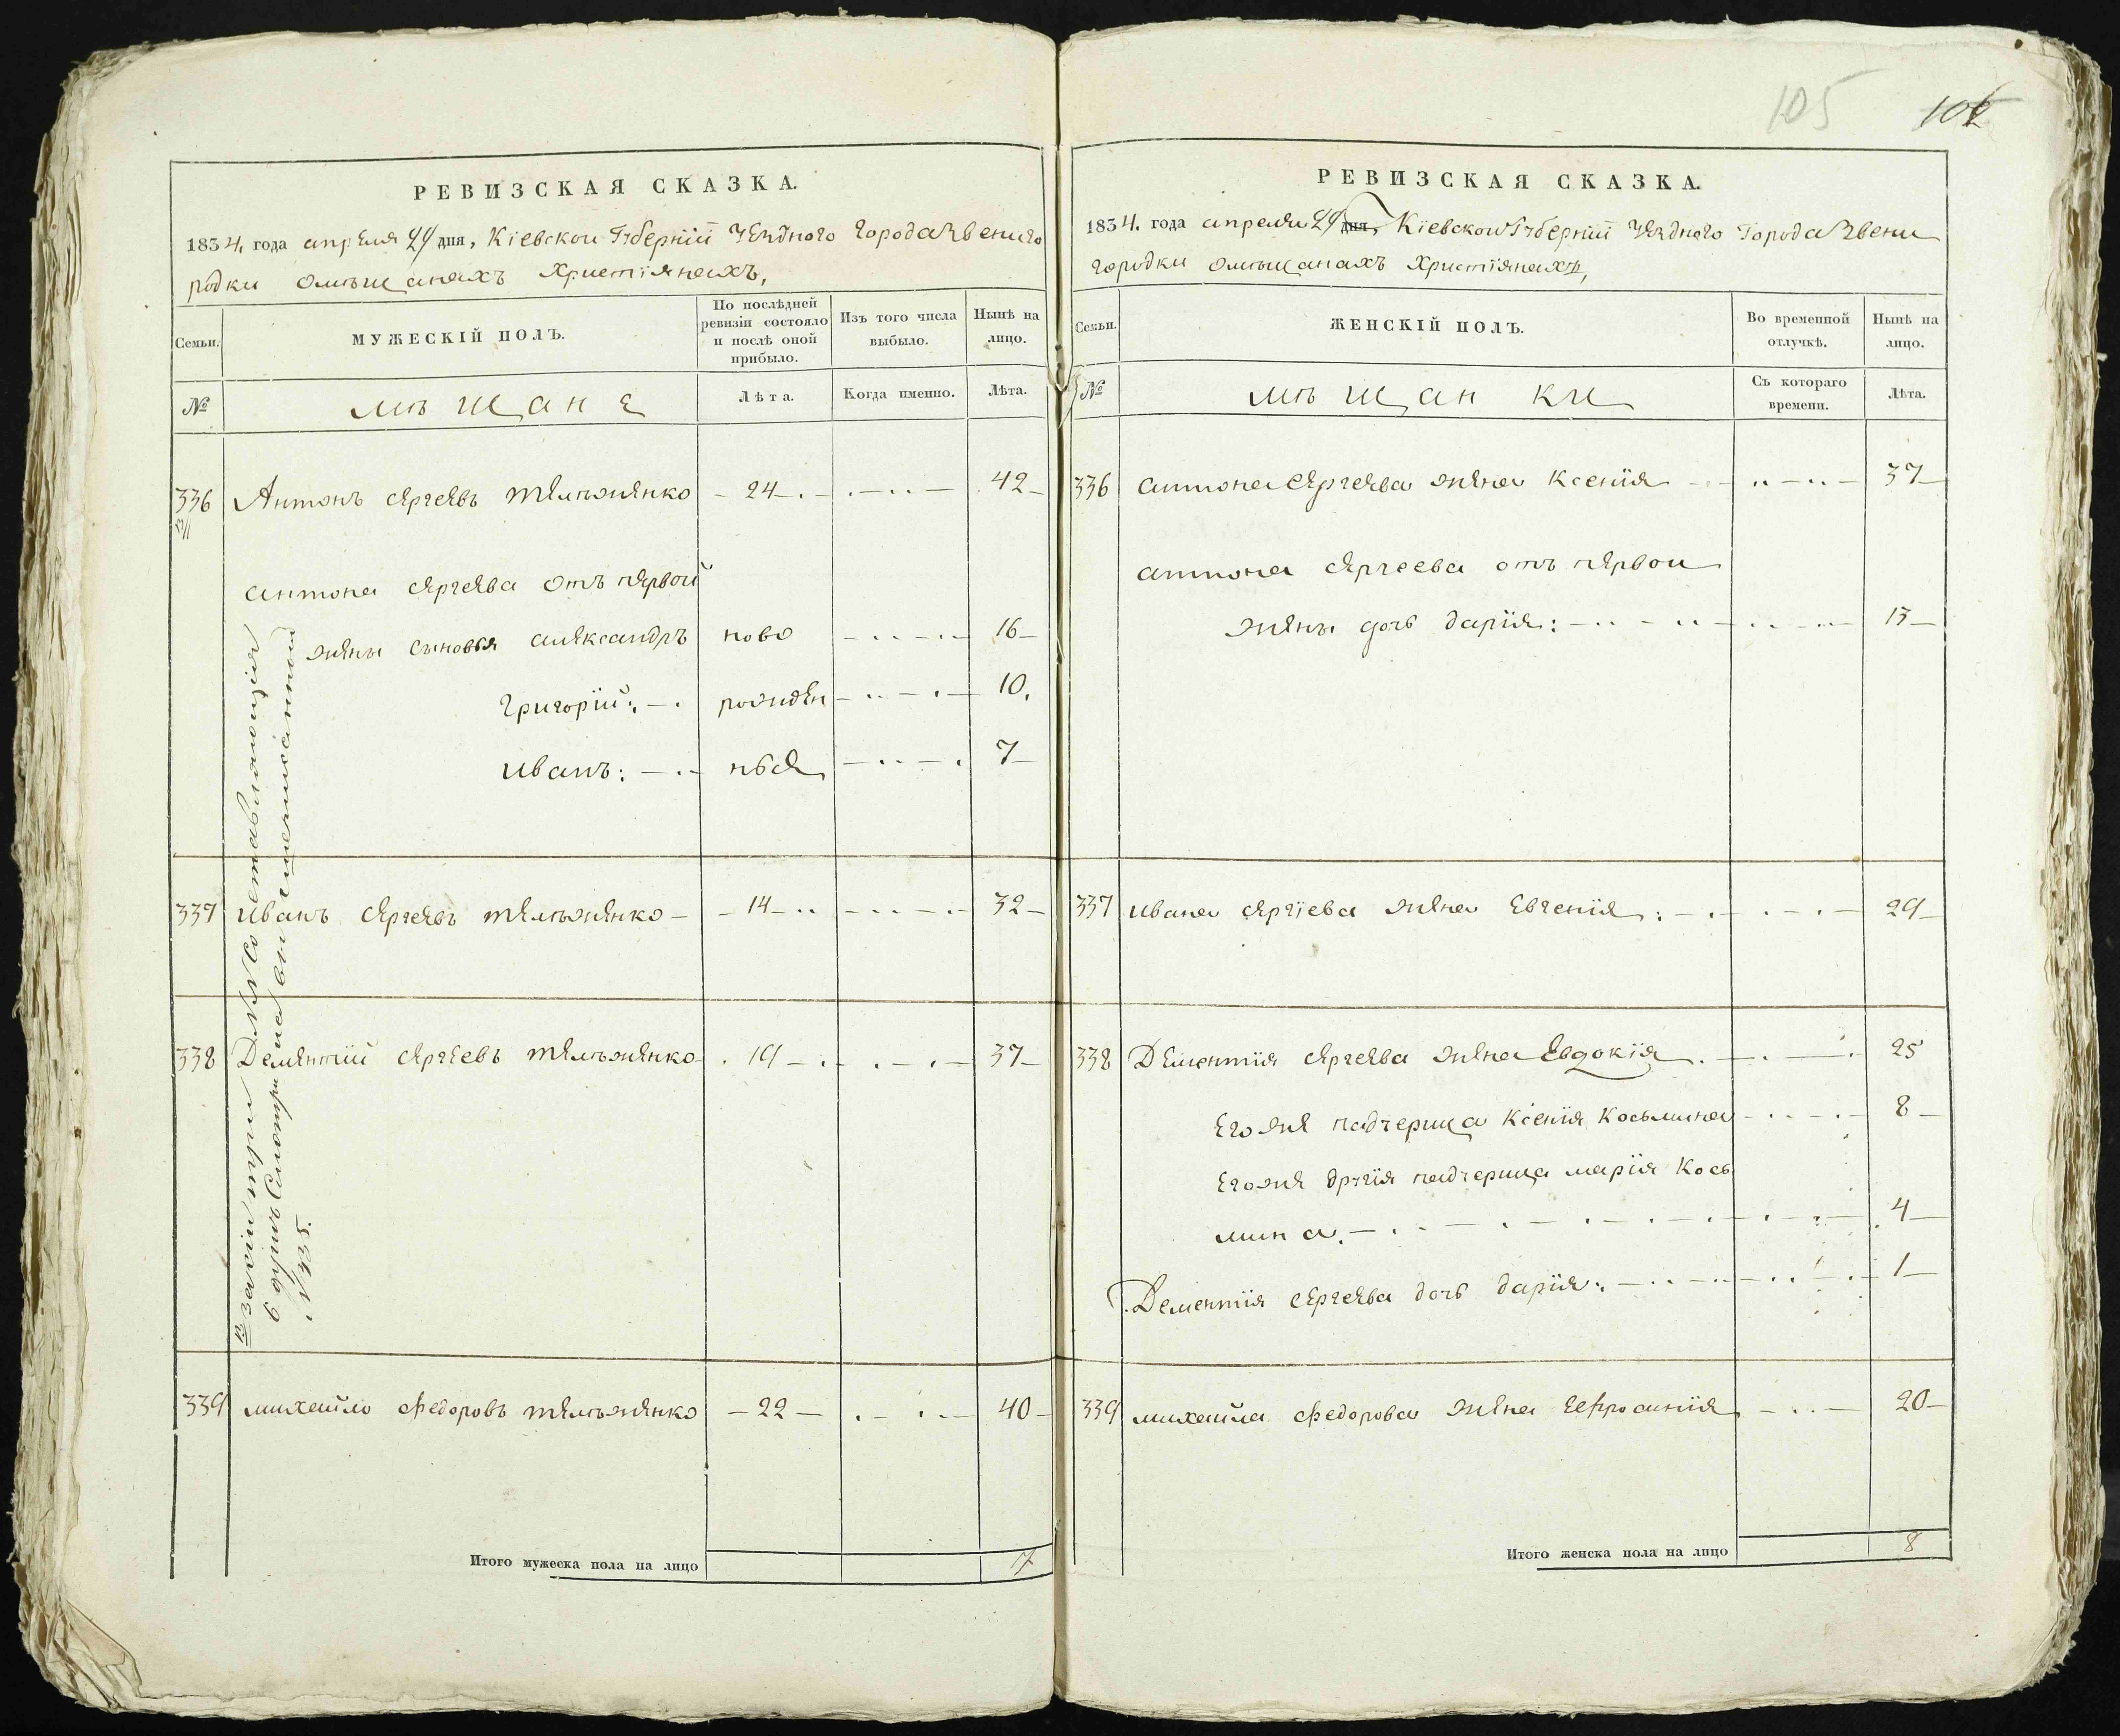 105 102
РЕВИЗСКАЯ СКАЗКА.
1834. года апреля 29 дня, Кіевской Губерніи Уезднаго города Звениго
родки о мѣщанахъ Христіянахъ,
Семьи. МУЖЕСКІЙ ПОЛЪ. По послѣдней ревизіи состояло и послѣ оной прибыло. Изъ того числа выбыло. Нынѣ на лицо.
№ мѣщане Лѣта. Когда именно. Лѣта.
336 Антонъ Сергеевъ 24 42
Антона Сергеева отъ первой
жены сыновья Александръ ново 16
Григорій: рожден 10.
Иванъ: ные 7
337 Иванъ Сергеевъ 14 32
338 Дементій Сергеевъ 19 37
339 Михайло Федоровъ 22 40
№ 335.
Итого мужеска пола на лицо 7
РЕВИЗСКАЯ СКАЗКА.
1834. года апреля 29 дня, Кіевской Губерніи Уезднаго Города Звени
городки о мѣщанахъ Христіянахъ,
Семьи. ЖЕНСКІЙ ПОЛЪ. Во временной отлучкѣ. Нынѣ на лицо.
№ мѣщанки Съ котораго времени. Лѣта.
336 Антона Сергеева жена Ксенія 37
Антона Сергеева отъ первой
жены дочь Дарія: 13
337 Ивана Сергіева жена Евгенія: 29
338 Дементія Сергеева жена Евдокія. 25
Его же падчерица Ксенія Косьмина 8
Его же другія падчерица Марія Кось
мина. 4
Дементія Сергеева дочь Дарія: 1
339 Михайла Федорова жена Ефросинія 20
Итого женска пола на лицо 8